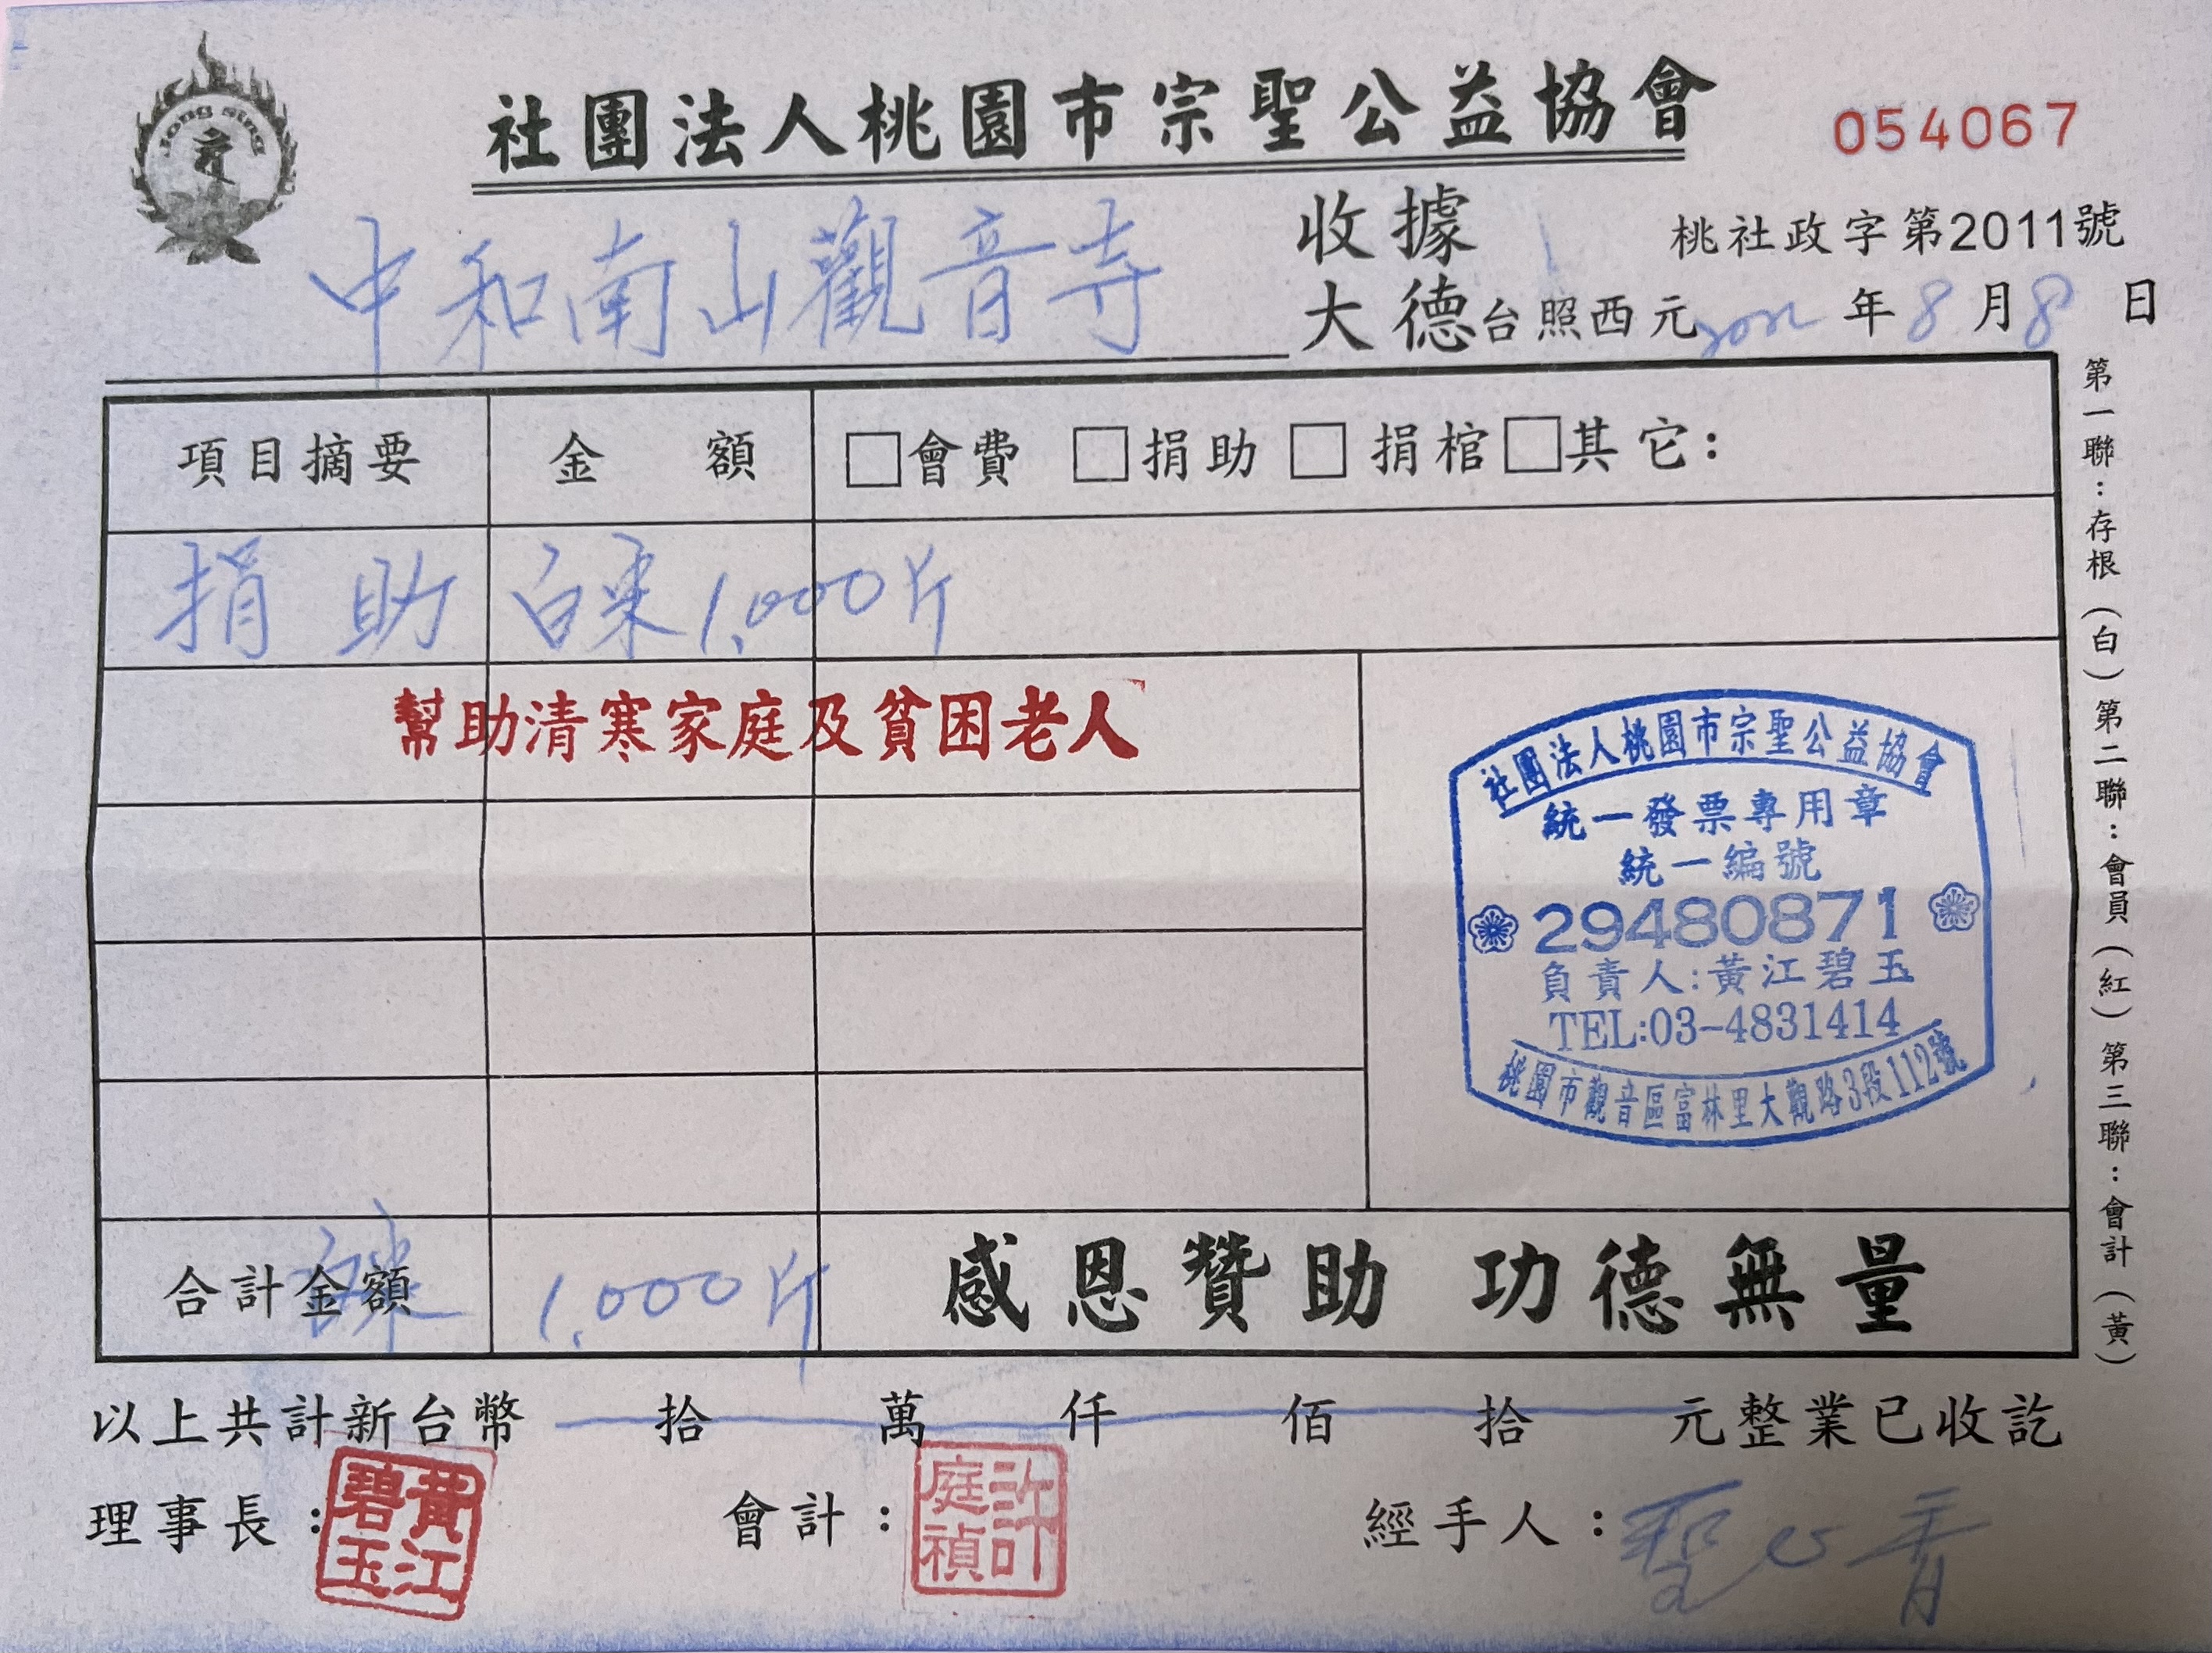 社團法人桃園市宗聖公益協會
054067
收據
桃社政字第2011號
中和南山觀音寺 大德台照西元 年8月8日
項目摘要 金額 □會費 □捐助 □捐棺 □其它：
捐助 白米1,000斤
幫助清寒家庭及貧困老人
社團法人桃園市宗聖公益協會
統一發票專用章
統一編號
29480871
負責人:黃江碧玉
TEL:03-4831414
桃園市觀音區富林里大觀路3段112號
合計金額 白米 1,000斤 感恩贊助 功德無量
以上共計新台幣 拾 萬 仟 佰 拾 元整業已收訖
理事長： 黃江碧玉 會計： 許庭禎 經手人：
第一聯：存根（白）第二聯：會員（紅）第三聯：會計（黃）